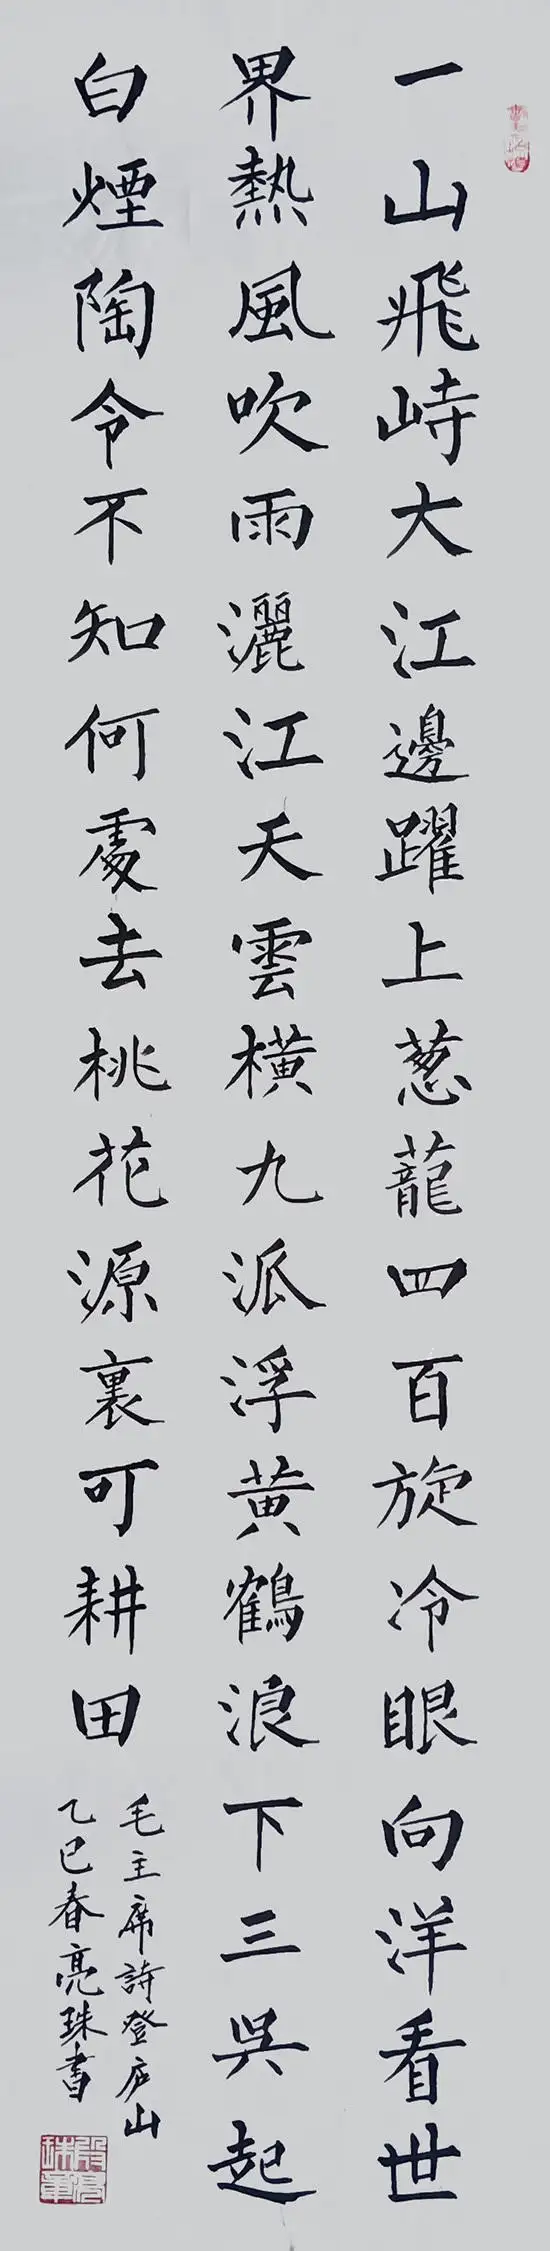 一山飛峙大江邊躍上蔥蘢四百旋冷眼向洋看世
界熱風吹雨灑江天雲橫九派浮黃鶴浪下三吳起
白煙陶令不知何處去桃花源裏可耕田
毛主席詩登庐山
乙巳春亮珠書